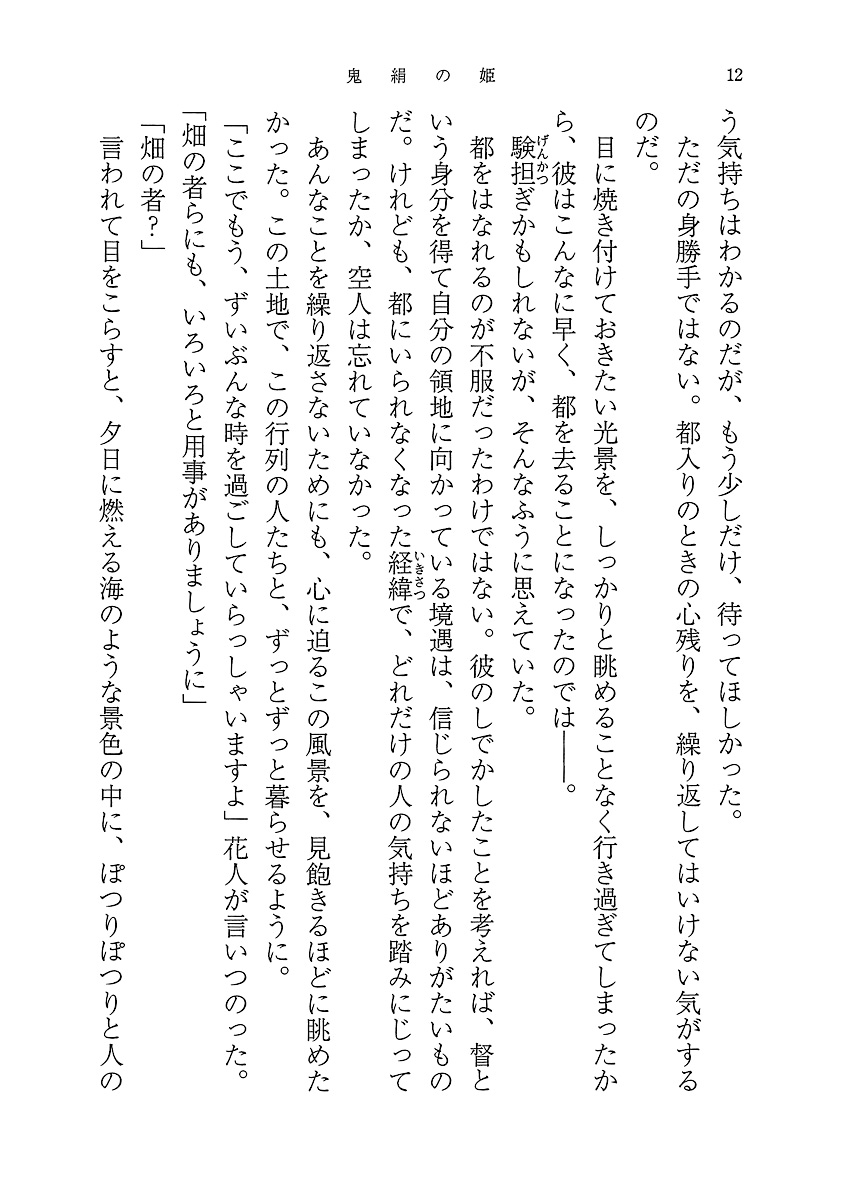 12
鬼絹の姫
う気持ちはわかるのだが、もう少しだけ、待ってほしかった。
ただの身勝手ではない。都入りのときの心残りを、繰り返してはいけない気がする
のだ。
目に焼き付けておきたい光景を、しっかりと眺めることなく行き過ぎてしまったか
ら、彼はこんなに早く、都を去ることになったのでは――。
験担ぎかもしれないが、そんなふうに思えていた。
げんかつ
都をはなれるのが不服だったわけではない。彼のしでかしたことを考えれば、督と
いう身分を得て自分の領地に向かっている境遇は、信じられないほどありがたいもの
だ。けれども、都にいられなくなった経緯で、どれだけの人の気持ちを踏みにじって
いきさつ
しまったか、空人は忘れていなかった。
あんなことを繰り返さないためにも、心に迫るこの風景を、見飽きるほどに眺めた
かった。この土地で、この行列の人たちと、ずっとずっと暮らせるように。
「ここでもう、ずいぶんな時を過ごしていらっしゃいますよ」花人が言いつのった。
「畑の者らにも、いろいろと用事がありましょうに」
「畑の者?」
言われて目をこらすと、夕日に燃える海のような景色の中に、ぽつりぽつりと人の